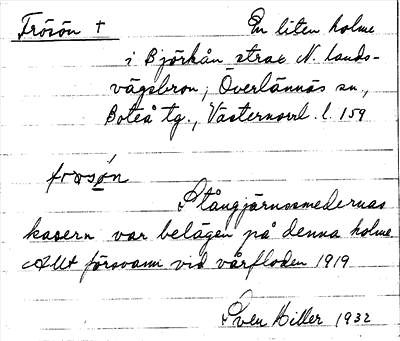 Frösön † En liten holme
i Björkån strax N. lands-
vägsbron, Överlännäs sn.,
Boteå tg., Västernorrl. l. 159
frøsø̀n
Stångjärnssmedernas
kasern var belägen på denna holme.
Allt försvann vid vårfloden 1919
Sven Hiller 1932